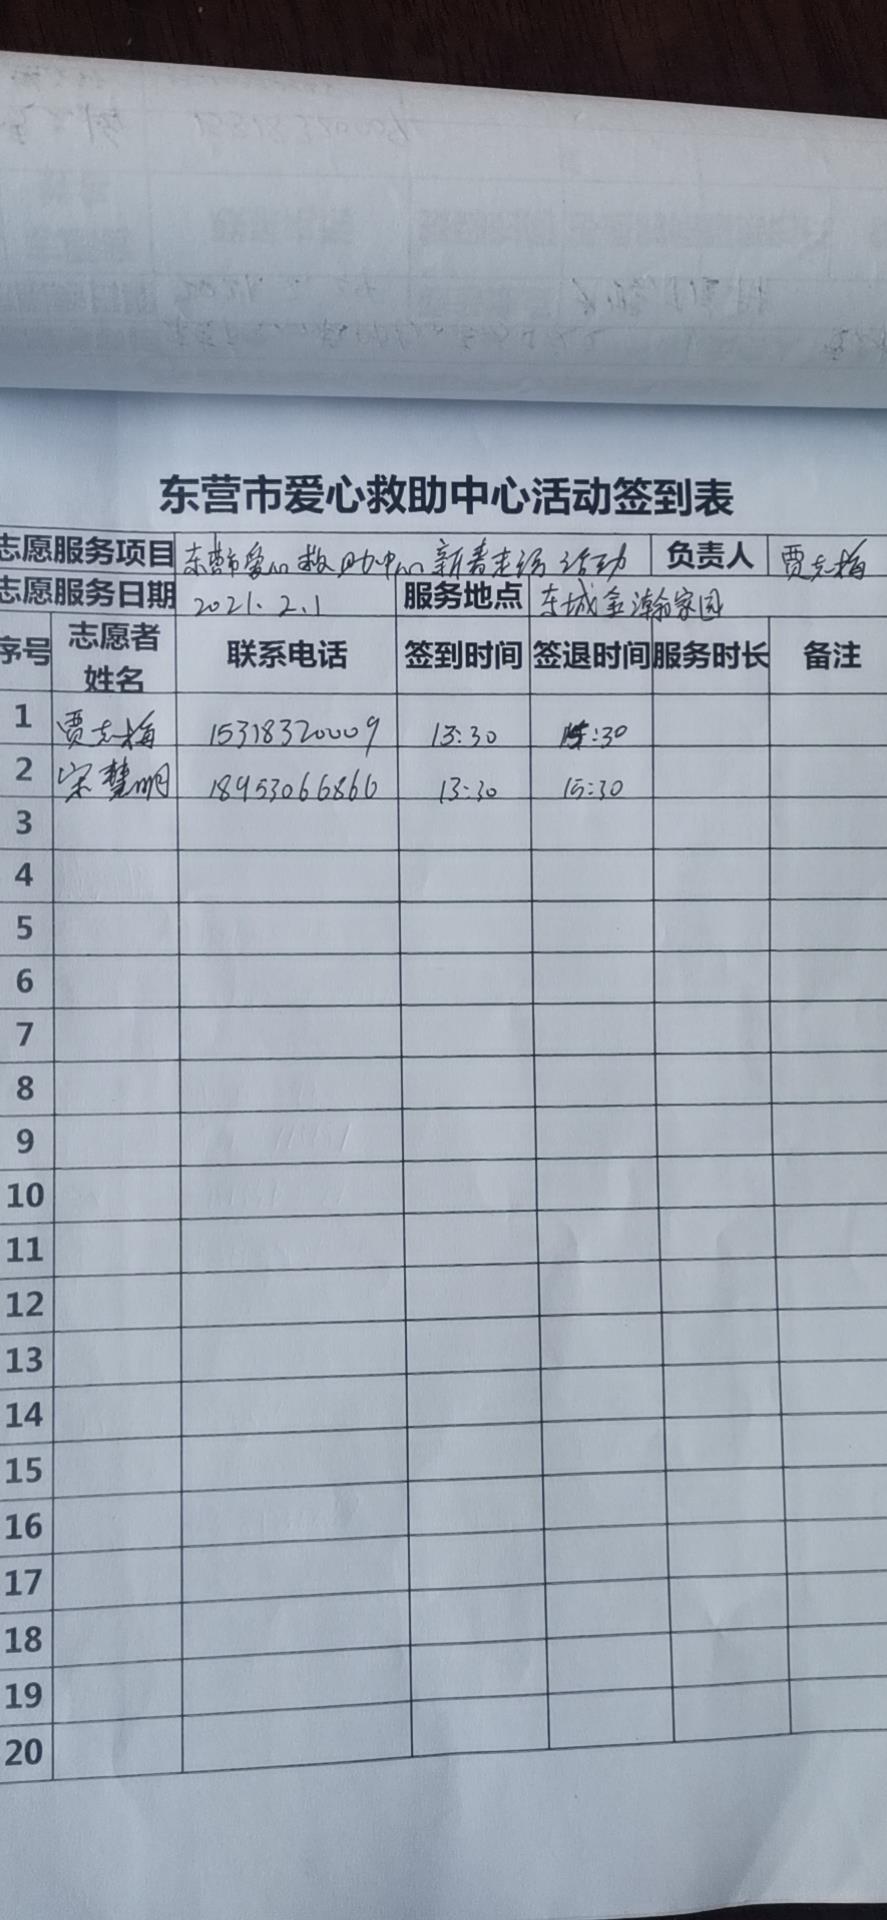 东营市爱心救助中心活动签到表
志愿服务项目 东营市爱心救助中心新春走访活动 负责人 贾志梅
志愿服务日期 2021.2.1 服务地点 东城金瀚家园
序号 志愿者姓名 联系电话 签到时间 签退时间 服务时长 备注
1 贾志梅 15318320009 13:30 15:30
2 宋慧明 18953066866 13:30 15:30
3
4
5
6
7
8
9
10
11
12
13
14
15
16
17
18
19
20